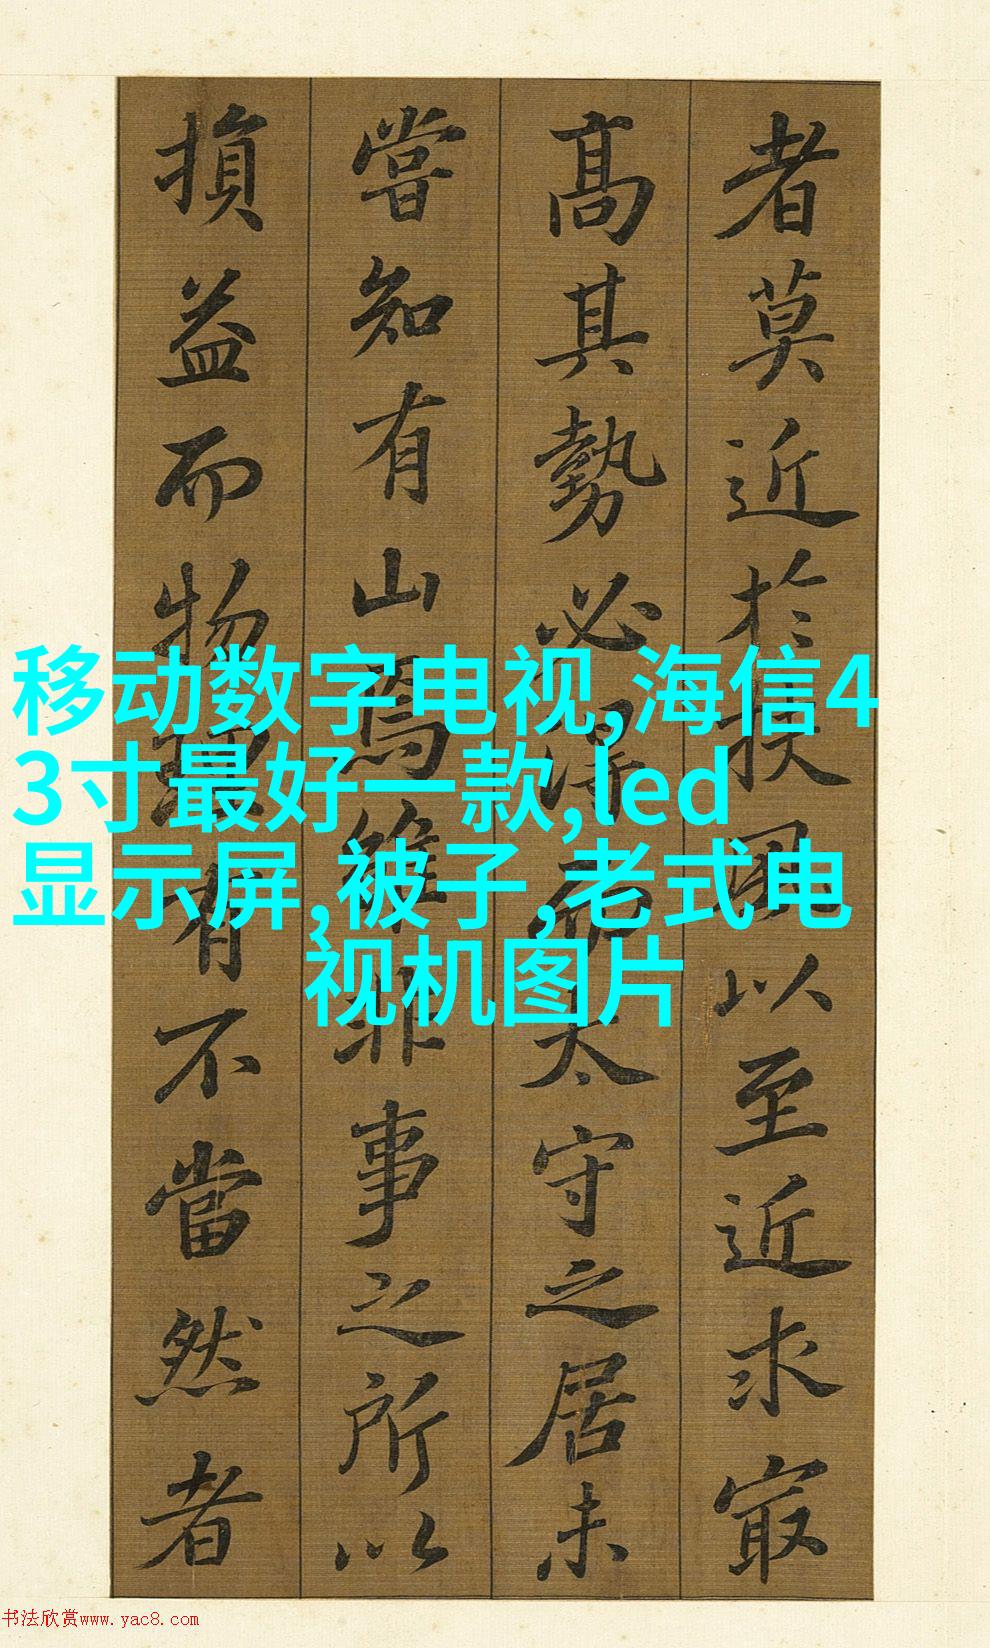 者莫近於扶風以至近求㝡
高其勢必得而太守之居未
嘗知有山焉雖非事之所以
損益而物理有不當然者
移动数字电视,海信4
3寸最好一款,led
显示屏,被子,老式电
视机图片
书法欣赏www.yac8.com